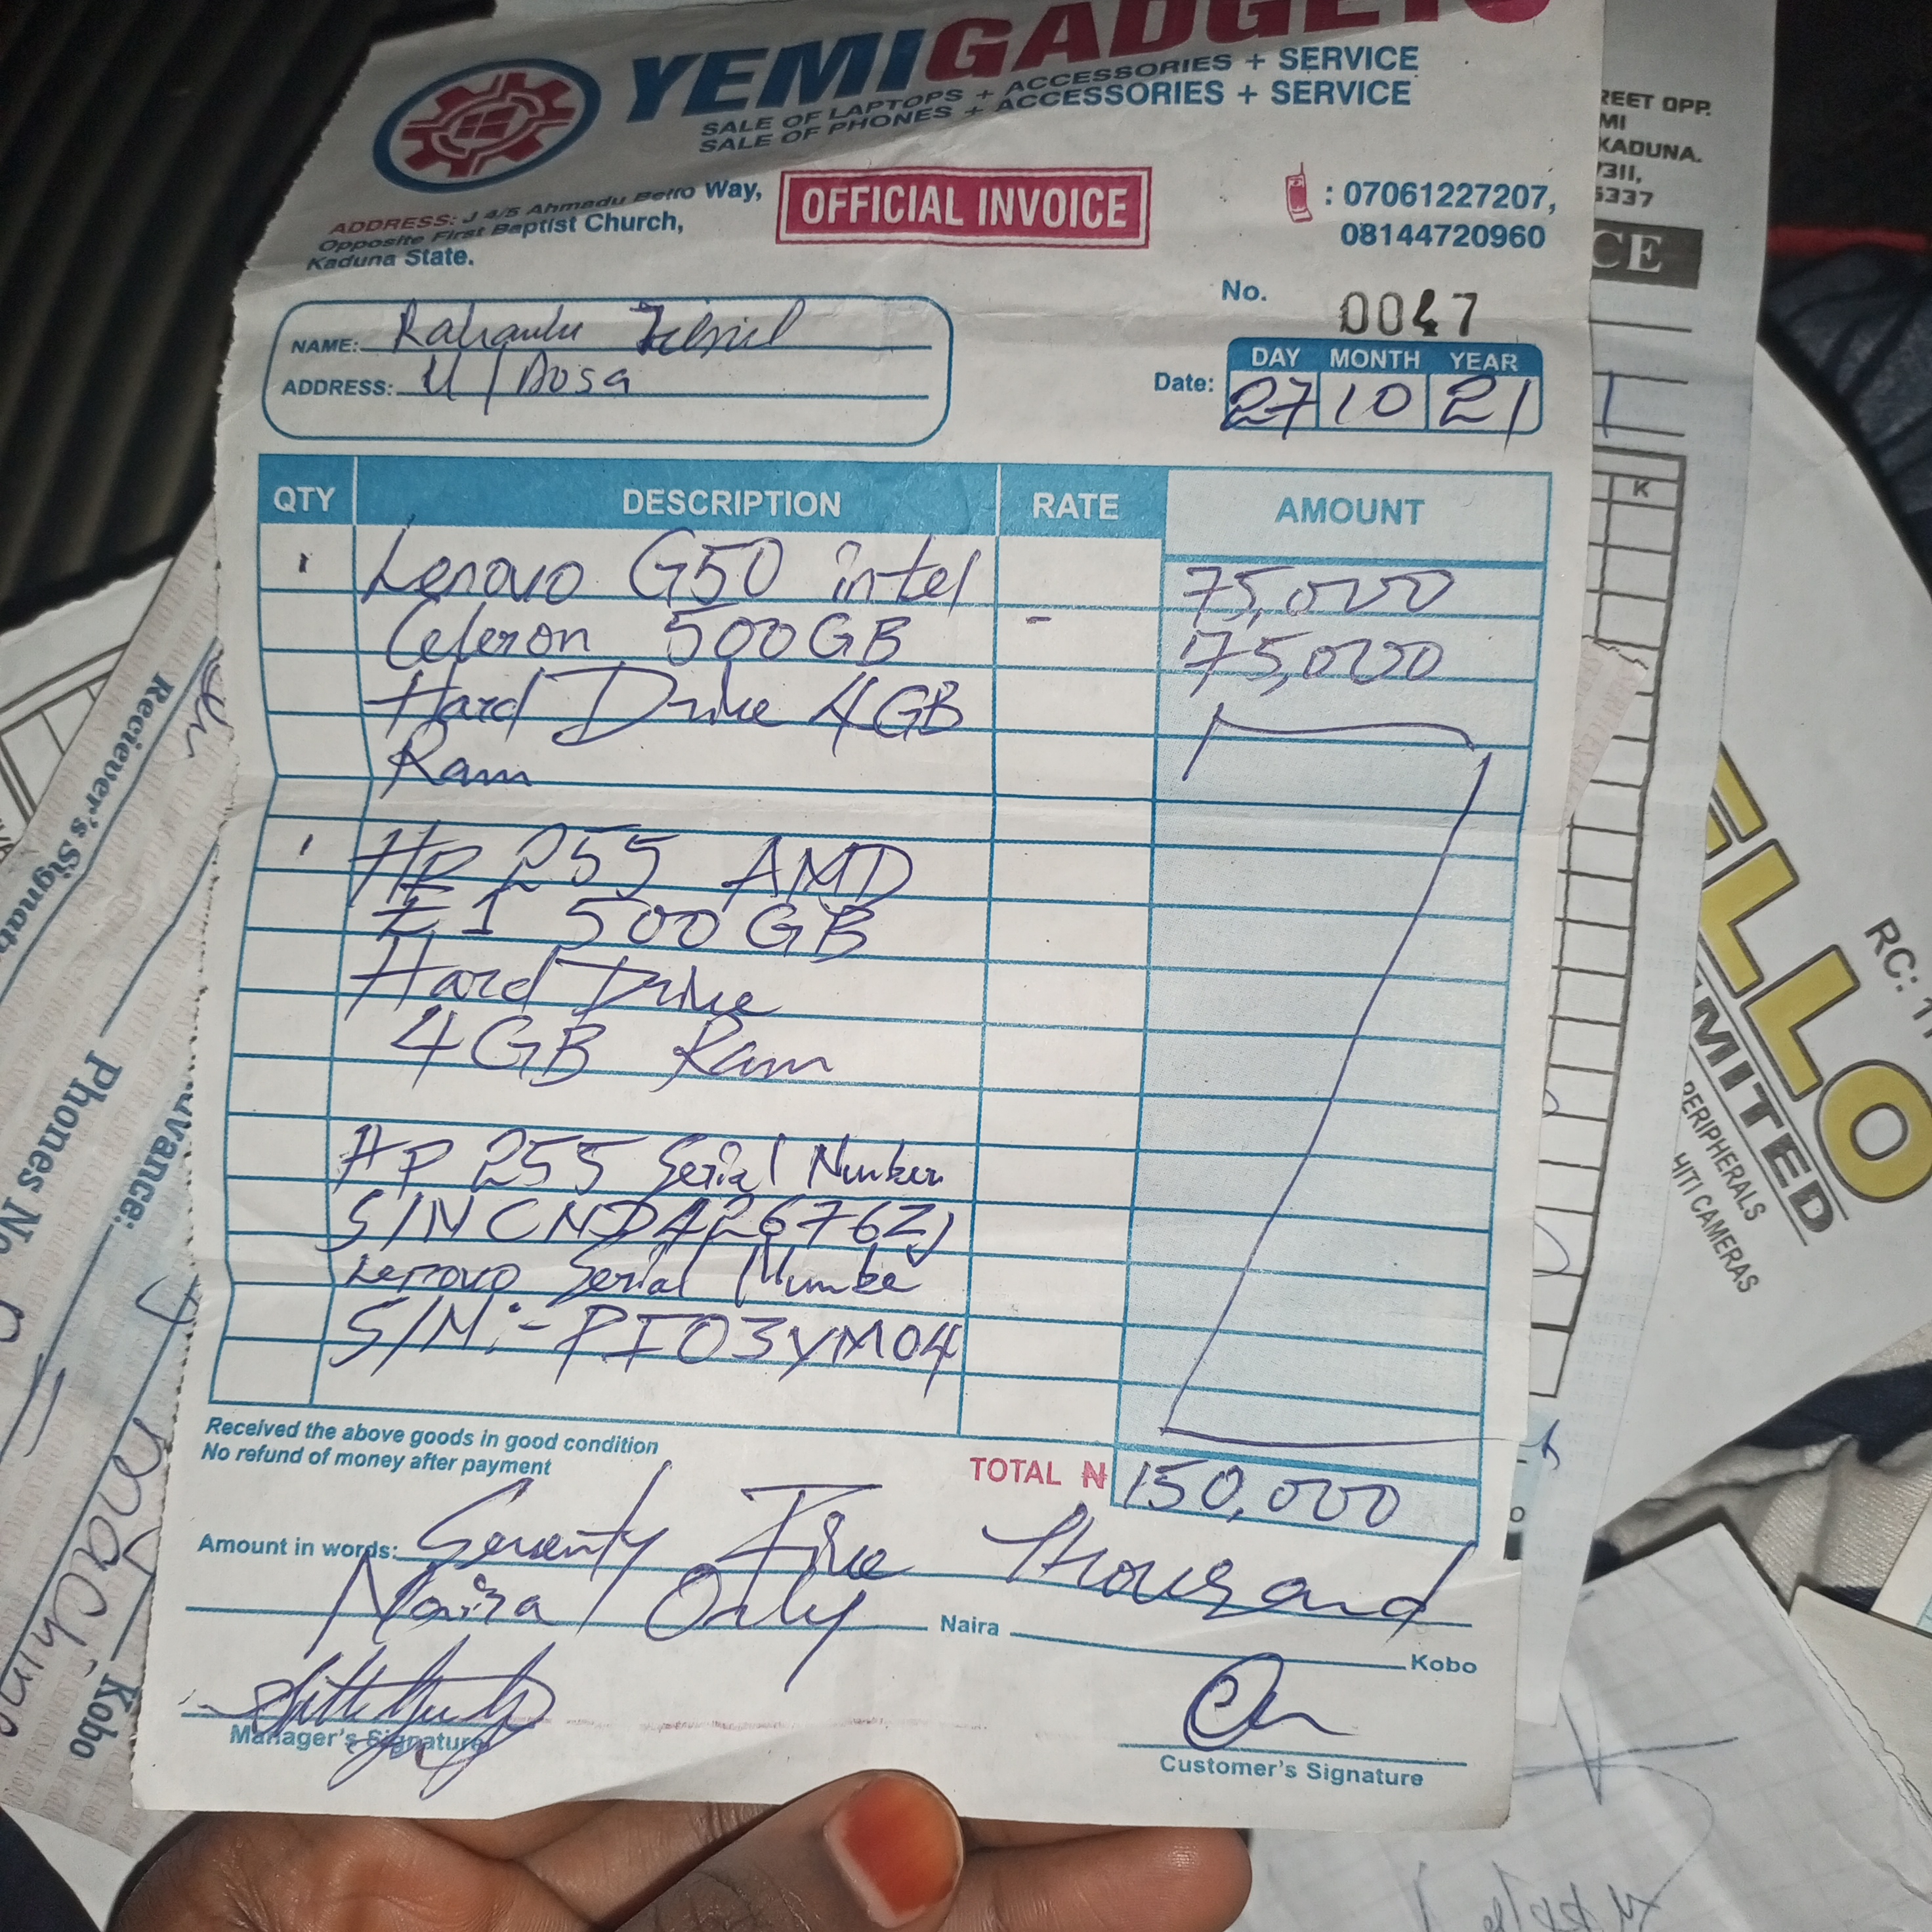 YEMIGADGETS
SALE OF LAPTOPS + ACCESSORIES + SERVICE
SALE OF PHONES + ACCESSORIES + SERVICE
ADDRESS: J 4/5 Ahmadu Bello Way,
Opposite First Baptist Church,
Kaduna State.
OFFICIAL INVOICE
: 07061227207,
08144720960
No. 0047
NAME:
ADDRESS: U/Dosa
DAY MONTH YEAR
Date: 27 10 21
QTY DESCRIPTION RATE AMOUNT
1 Lenovo G50 intel 75,000
Celeron 500GB - 75,000
Hard Drive 4GB
Ram
1 HP 255 AMD
E1 500GB
Hard Drive
4GB Ram
HP 255 Serial Number
S/N CND42676ZJ
Lenovo Serial Numbe
S/N:- PF03YM04
Received the above goods in good condition
No refund of money after payment
TOTAL ₦ 150,000
Amount in words: Seventy Five Thousand
Naira Only Naira Kobo
Manager's Signature
Customer's Signature
REET OPP.
MI
KADUNA.
7311,
5337
CE
K
ELLO
RC: 11
MITED
PERIPHERALS
HITI CAMERAS
Reciever's Signat
Phones No
vance:
Kobo